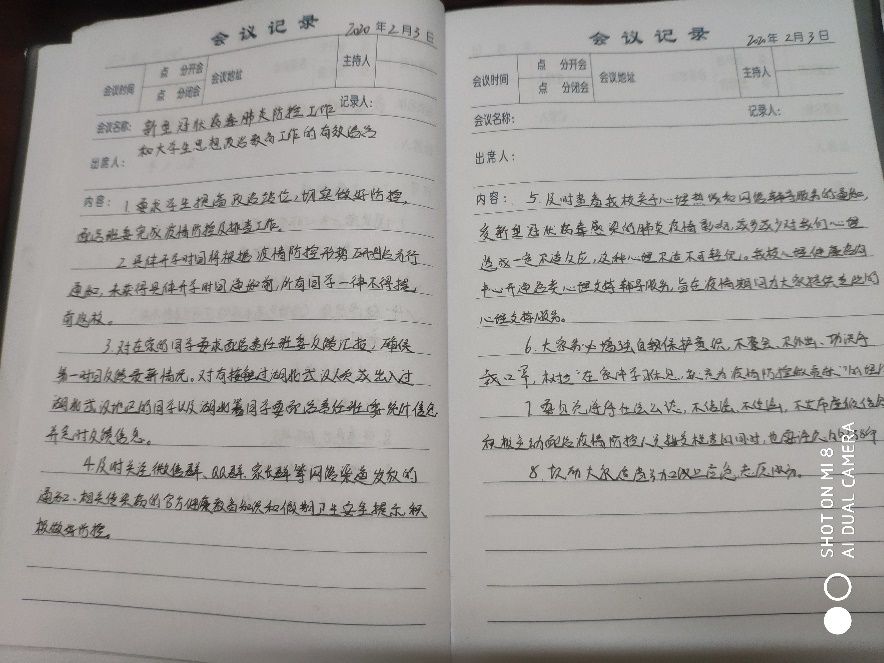 会议记录
2020年2月3日
会议时间
点 分开会
点 分闭会
会议地址
主持人
记录人:
会议名称: 新型冠状病毒肺炎防控工作
和大学生思想政治教育工作的有效结合
出席人:
内容: 1.要求学生提高政治站位,切实做好防控,
配合班委完成疫情防控及排查工作。
2.具体开学时间将根据疫情防控形势研判后另行
通知,未获得具体开学时间通知前,所有同学一律不得提
前返校。
3.对在家的同学要求配合责任班委反馈汇报,确保
第一时间反馈最新情况。对有接触过湖北武汉人员或出入过
湖北武汉地区的同学以及湖北籍同学要配合责任班委统计信息
并及时反馈信息。
4.及时关注微信群、QQ群、家长群等网络渠道发放的
通知、相关传染病的官方健康教育知识和假期卫生安全提示,积
极做好防控。
会议记录
2020年2月3日
会议时间
点 分开会
点 分闭会
会议地址
主持人
记录人:
会议名称:
出席人:
内容: 5.及时查看我校关于心理热线和网络辅导服务的通知,
受新型冠状病毒感染的肺炎疫情影响,或多或少对我们心理
造成一定不适反应,这种心理不适不可轻视。我校心理健康咨询
中心开通各类心理支持辅导服务,旨在疫情期间为大家提供专业的
心理支持服务。
6.大家务必增强自我保护意识,不聚会、不外出、勤洗手
戴口罩,
7.要员 不信谣、不传谣,不发布虚假信息
积极主动配合疫情防控人员相关检查的同时,也要
8.
SHOT ON MI 8
AI DUAL CAMERA